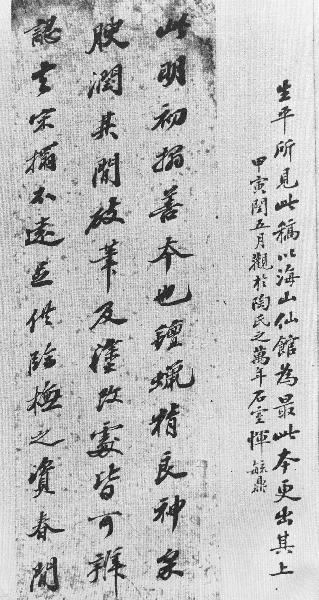 生平所見此稿以海山仙館為最此本更出其上
甲寅閏五月觀於陶氏之萬年石室惲毓鼎
此明初搨善本也鐘蠟精良神采
腴潤其間破筆及塗改處皆可辨
認去宋搨不遠足供臨橅之資春閒